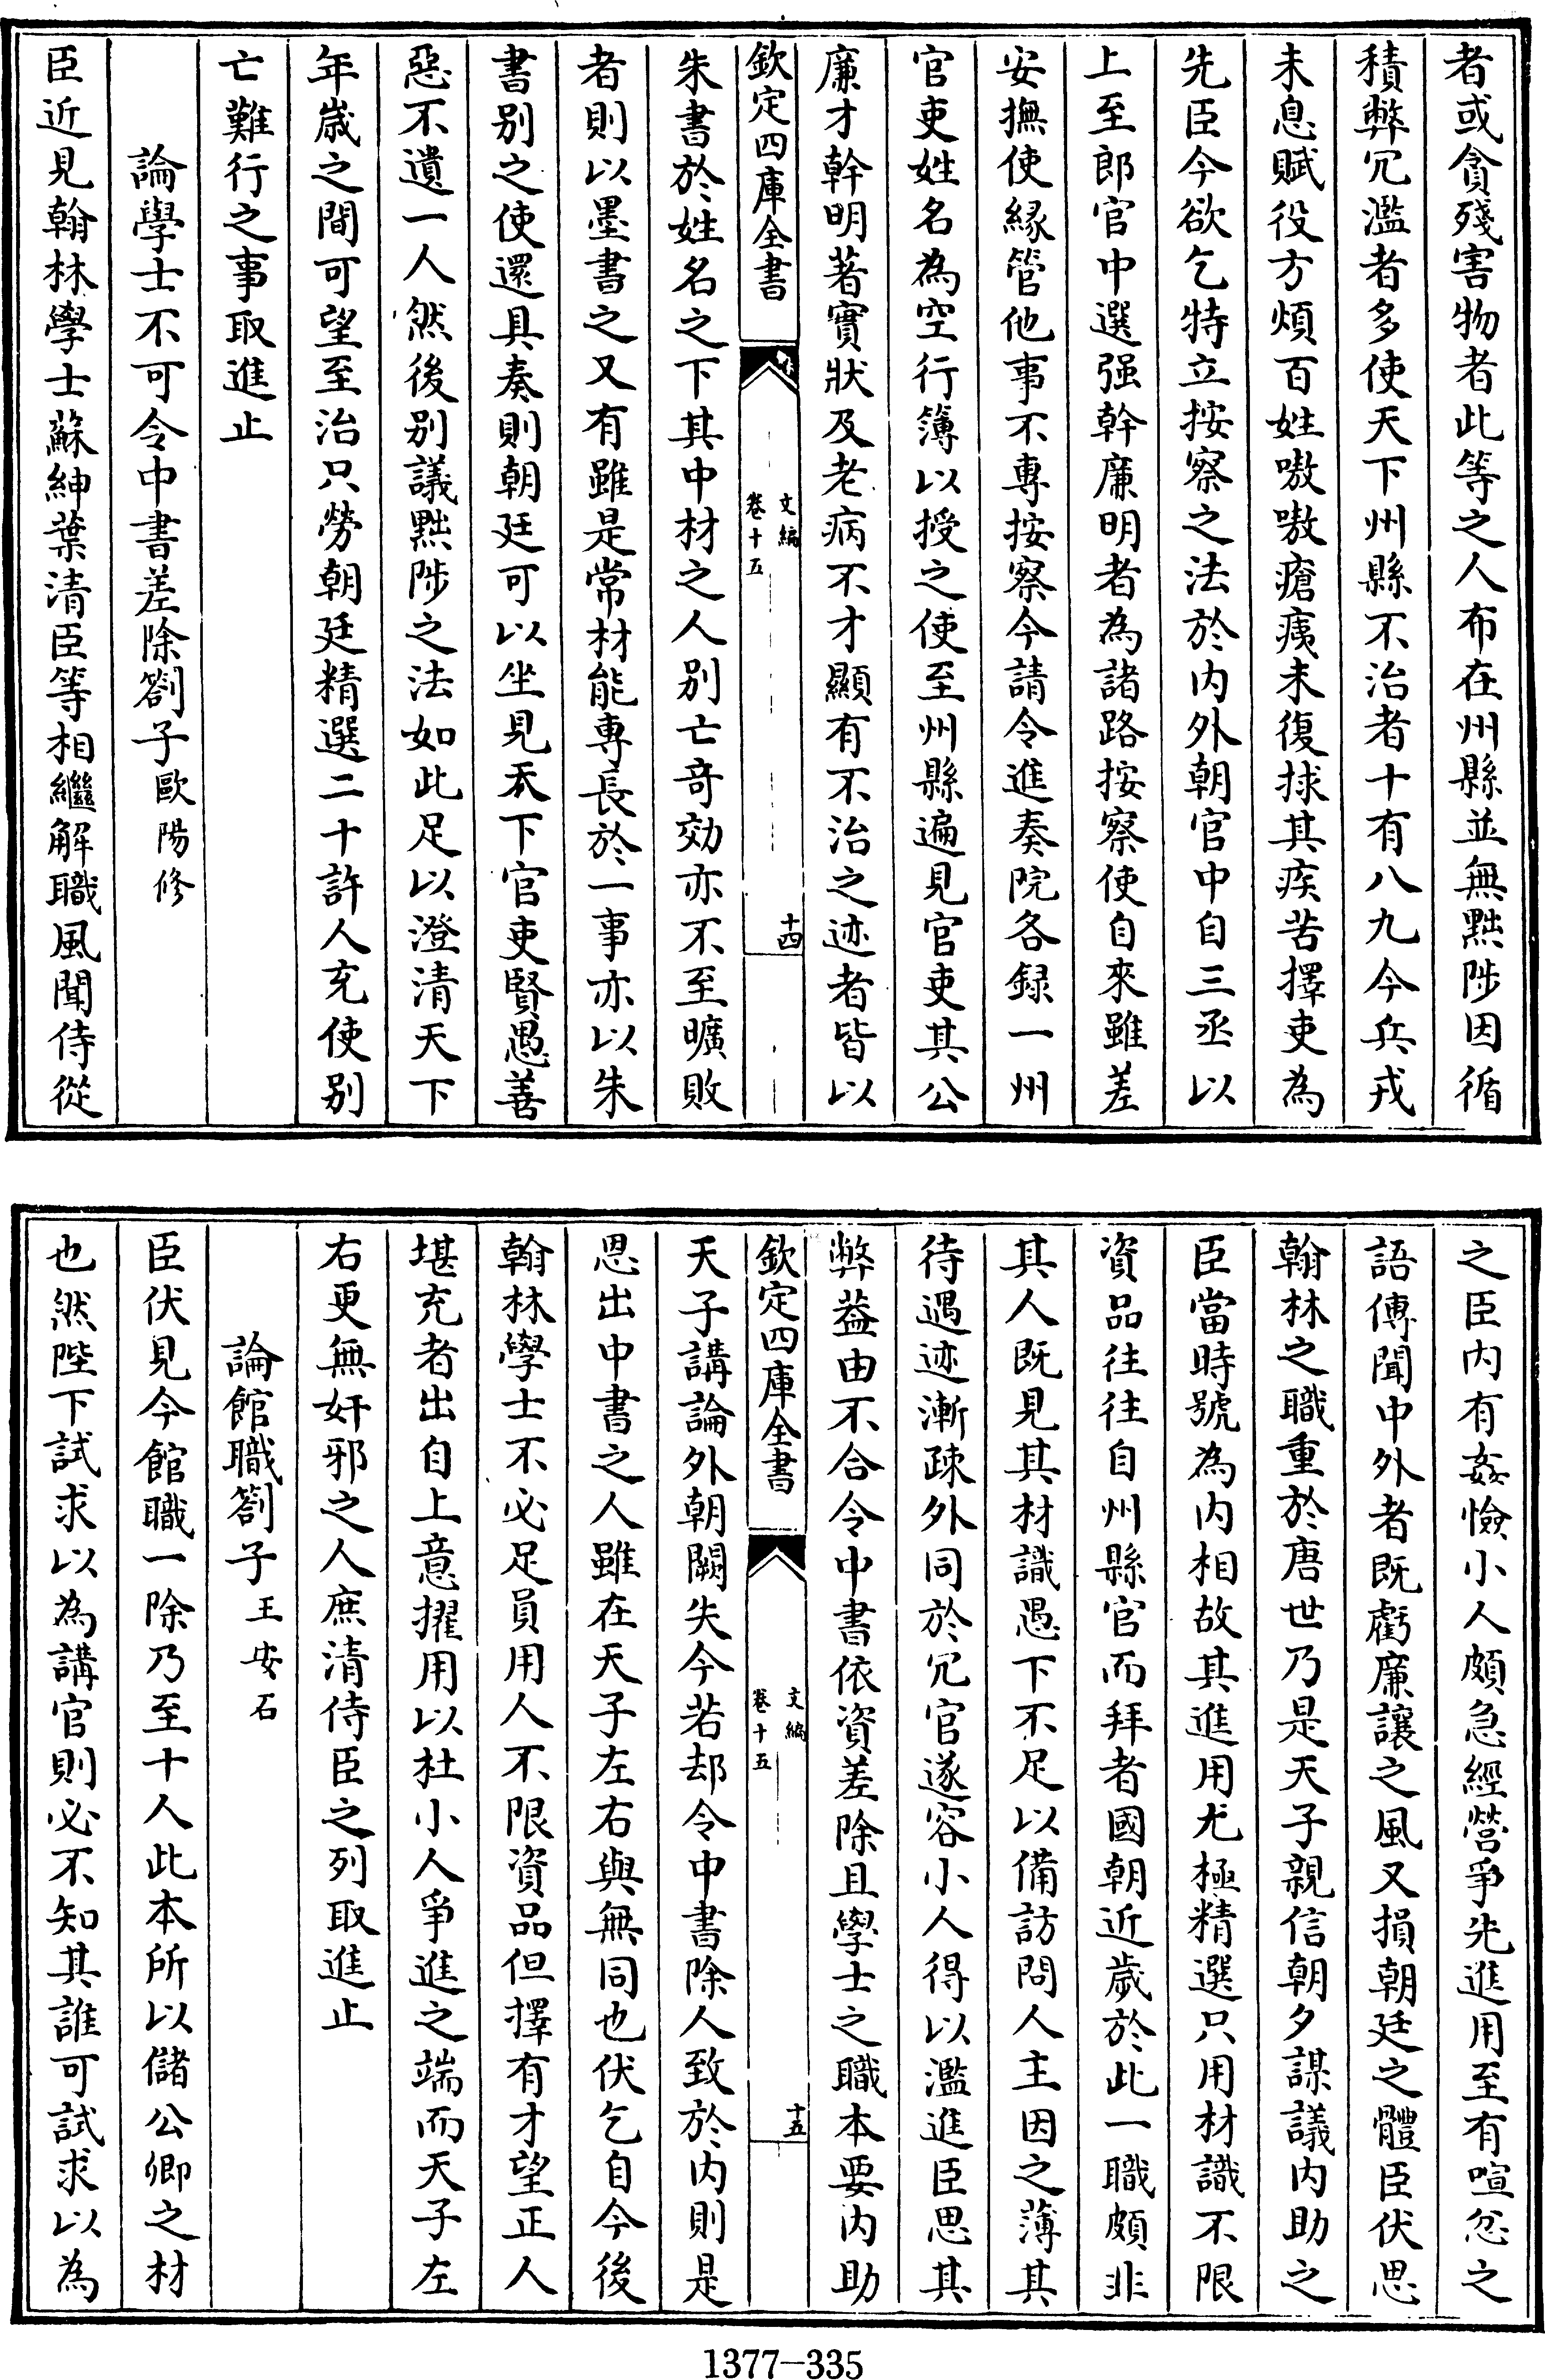 者或貪殘害物者此等之人布在州縣並無黜陟因循
積弊冗濫者多使天下州縣不治者十有八九今兵戎
未息賦役方煩百姓嗷嗷瘡痍未復捄其疾苦擇吏為
先臣今欲乞特立按察之法於内外朝官中自三丞以
上至郎官中選强幹廉明者為諸路按察使自來雖差
安撫使緣管他事不專按察今請令進奏院各録一州
官吏姓名為空行簿以授之使至州縣遍見官吏其公
廉才幹明著實狀及老病不才顯有不治之迹者皆以
欽定四庫全書
文編
卷十五
十四
朱書於姓名之下其中材之人别亡奇効亦不至曠敗
者則以墨書之又有雖是常材能專長於一事亦以朱
書别之使還具奏則朝廷可以坐見天下官吏賢愚善
惡不遺一人然後别議黜陟之法如此足以澄清天下
年嵗之間可望至治只勞朝廷精選二十許人充使别
亡難行之事取進止
論學士不可令中書差除劄子歐陽修
臣近見翰林學士蘇紳葉清臣等相繼解職風聞侍從
之臣内有姦憸小人頗急經營爭先進用至有喧忿之
語傳聞中外者既虧廉讓之風又損朝廷之體臣伏思
翰林之職重於唐世乃是天子親信朝夕謀議内助之
臣當時號為内相故其進用尤極精選只用材識不限
資品往往自州縣官而拜者國朝近嵗於此一職頗非
其人既見其材識愚下不足以備訪問人主因之薄其
待遇迹漸疎外同於冗官遂容小人得以濫進臣思其
弊葢由不合令中書依資差除且學士之職本要内助
欽定四庫全書
文編
卷十五
十五
天子講論外朝闕失今若却令中書除人致於内則是
恩出中書之人雖在天子左右與無同也伏乞自今後
翰林學士不必足員用人不限資品但擇有才望正人
堪充者出自上意擢用以杜小人爭進之端而天子左
右更無奸邪之人庶清侍臣之列取進止
論館職劄子王安石
臣伏見今館職一除乃至十人此本所以儲公卿之材
也然陛下試求以為講官則必不知其誰可試求以為
1377-335